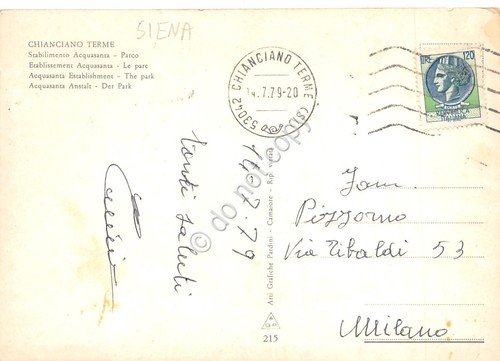 SIENA
CHIANCIANO TERME
Stabilimento Acquasanta - Parco
Etablissement Acquasanta - Le parc
Acquasanta Establishment - The park
Acquasanta Anstalt - Der Park
53042 CHIANCIANO TERME (SI)
14.7.79-20
LIRE 120
14.7.79
Tanti saluti
Ani Grafiche Pardini - Camaiore - Rip. vietata
215
do not copy
Fam.
Pizzorno
Via Tibaldi 53
Milano